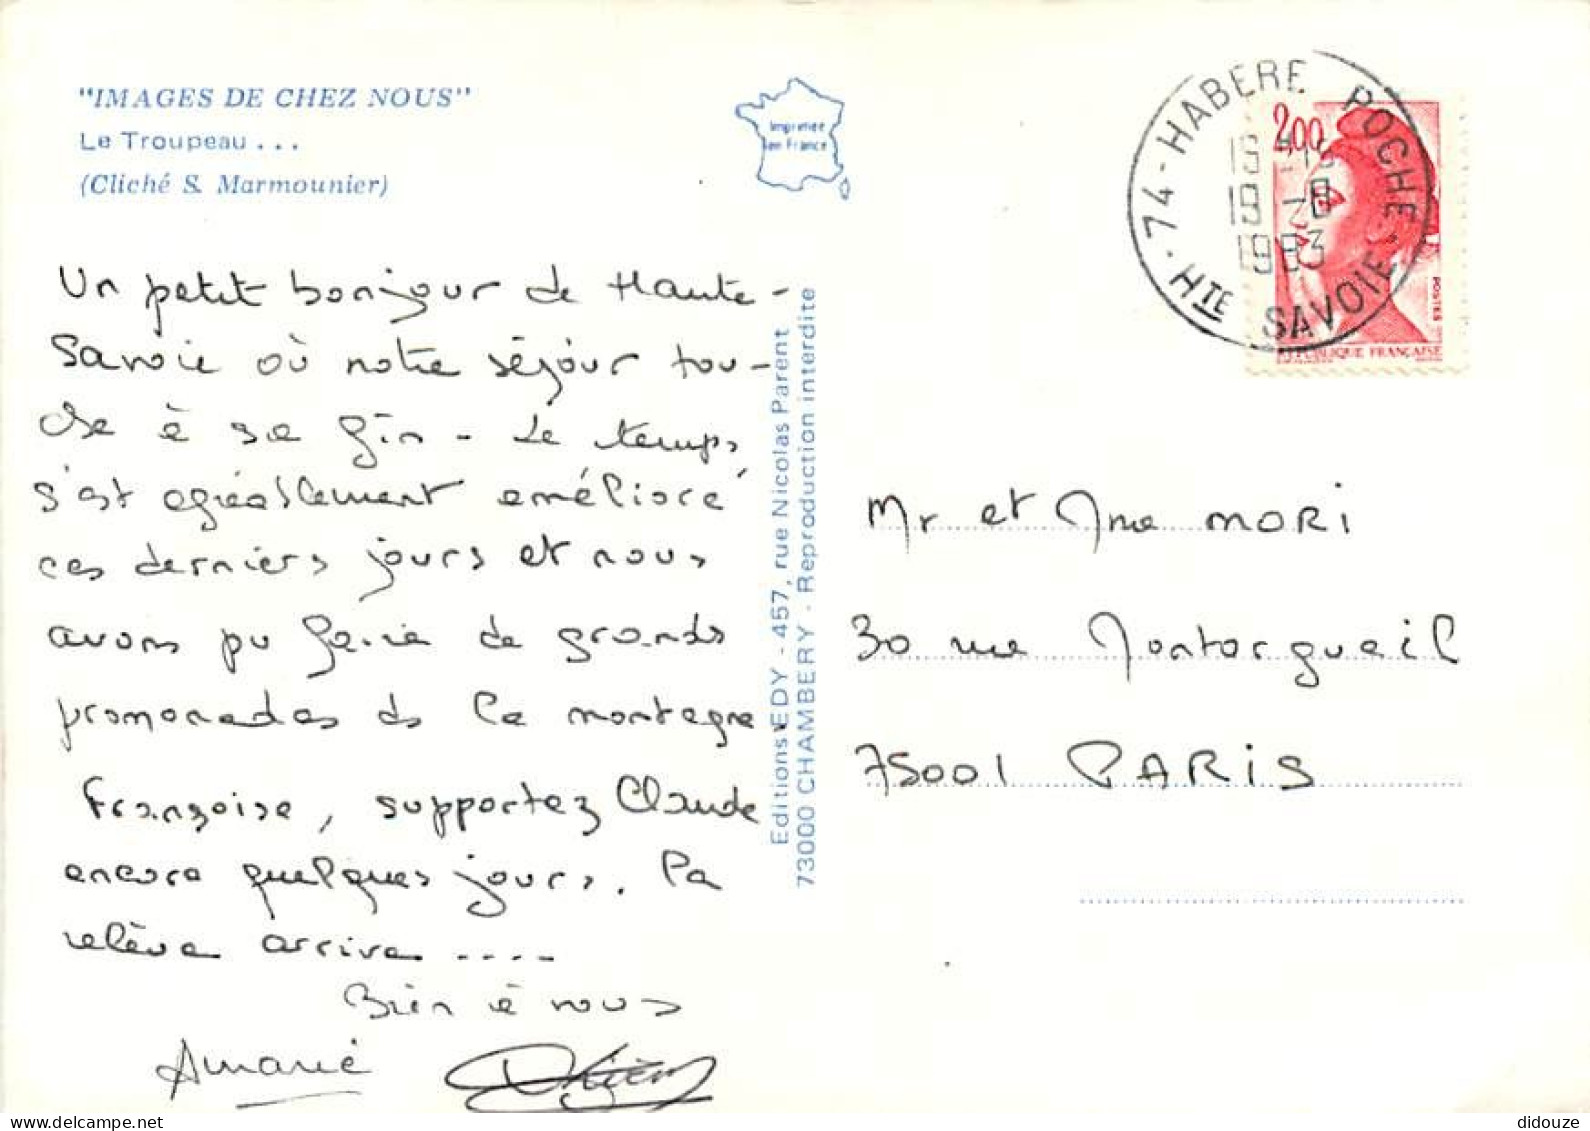 "IMAGES DE CHEZ NOUS"
Le Troupeau . . .
(Cliché S. Marmounier)
Imprimée
en France
74 - HABERE POCHE
Hte SAVOIE
19 -8
1983
2,00
POSTES
REPUBLIQUE FRANÇAISE
Un petit bonjour de Haute-
Savoie où notre séjour tou-
che à sa fin - Le temps
s'est agréablement amélioré
ces derniers jours et nous
avons pu faire de grandes
promenades ds la montagne
Françoise, supportez Claude
encore quelques jours. la
relève arrive ....
Bien à vous
Editions EDY - 457, rue Nicolas Parent
73000 CHAMBERY - Reproduction interdite
Mr et Mme MORI
30 rue Montorgueil
75001 PARIS
didouze